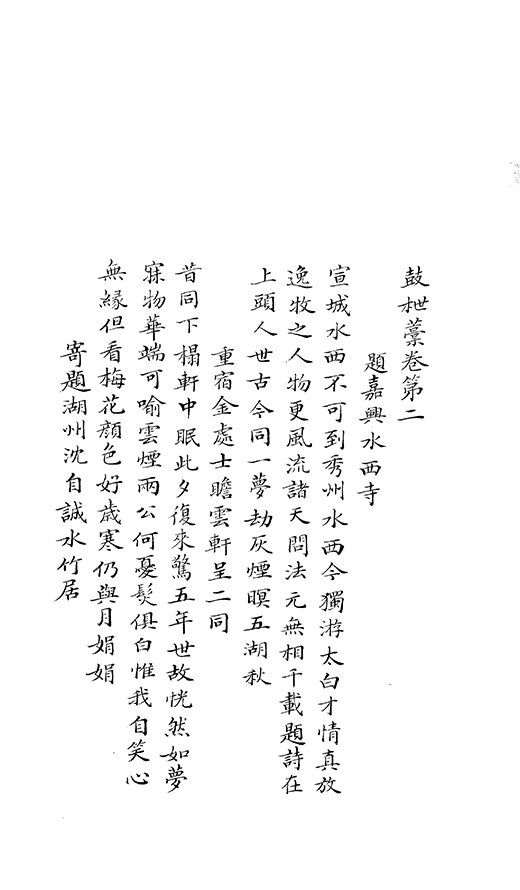 鼓枻藁卷第二
題嘉興水西寺
宣城水西不可到秀州水西今獨游太白才情真放
逸牧之人物更風流諸天問法元無相千載題詩在
上頭人世古今同一夢劫灰煙暝五湖秋
重宿金處士瞻雲軒呈二同
昔同下榻軒中眠此夕復來驚五年世故恍然如夢
寐物華端可喻雲煙兩公何憂髮俱白惟我自笑心
無緣但看梅花顔色好歲寒仍與月娟娟
寄題湖州沈自誠水竹居